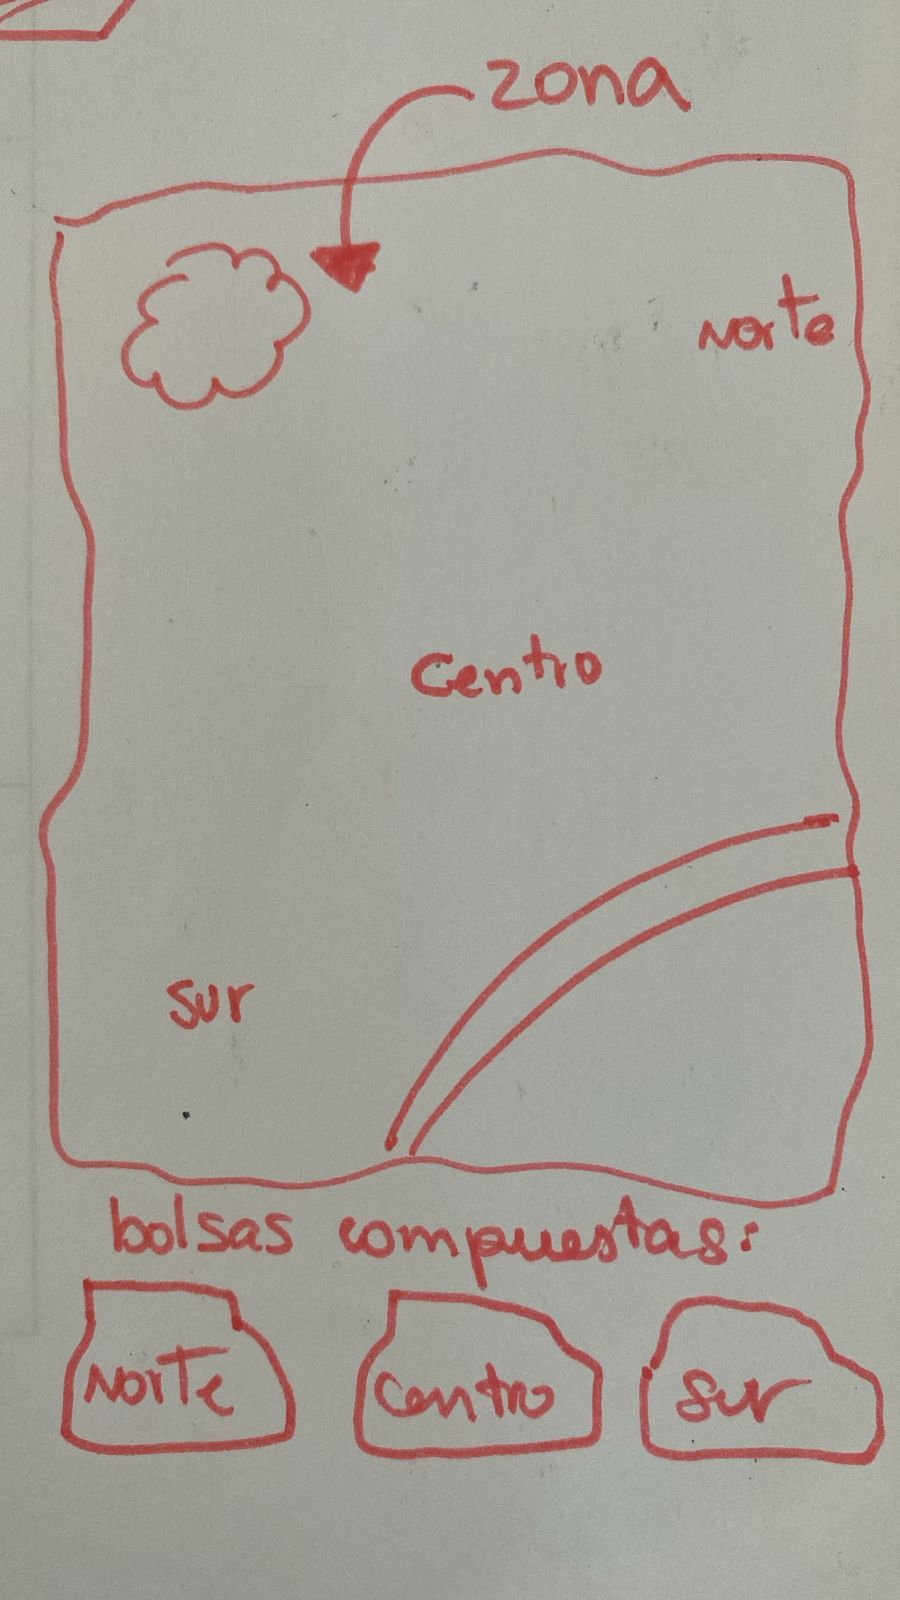 zona
Norte
Centro
Sur
bolsas compuestas:
Norte
Centro
Sur